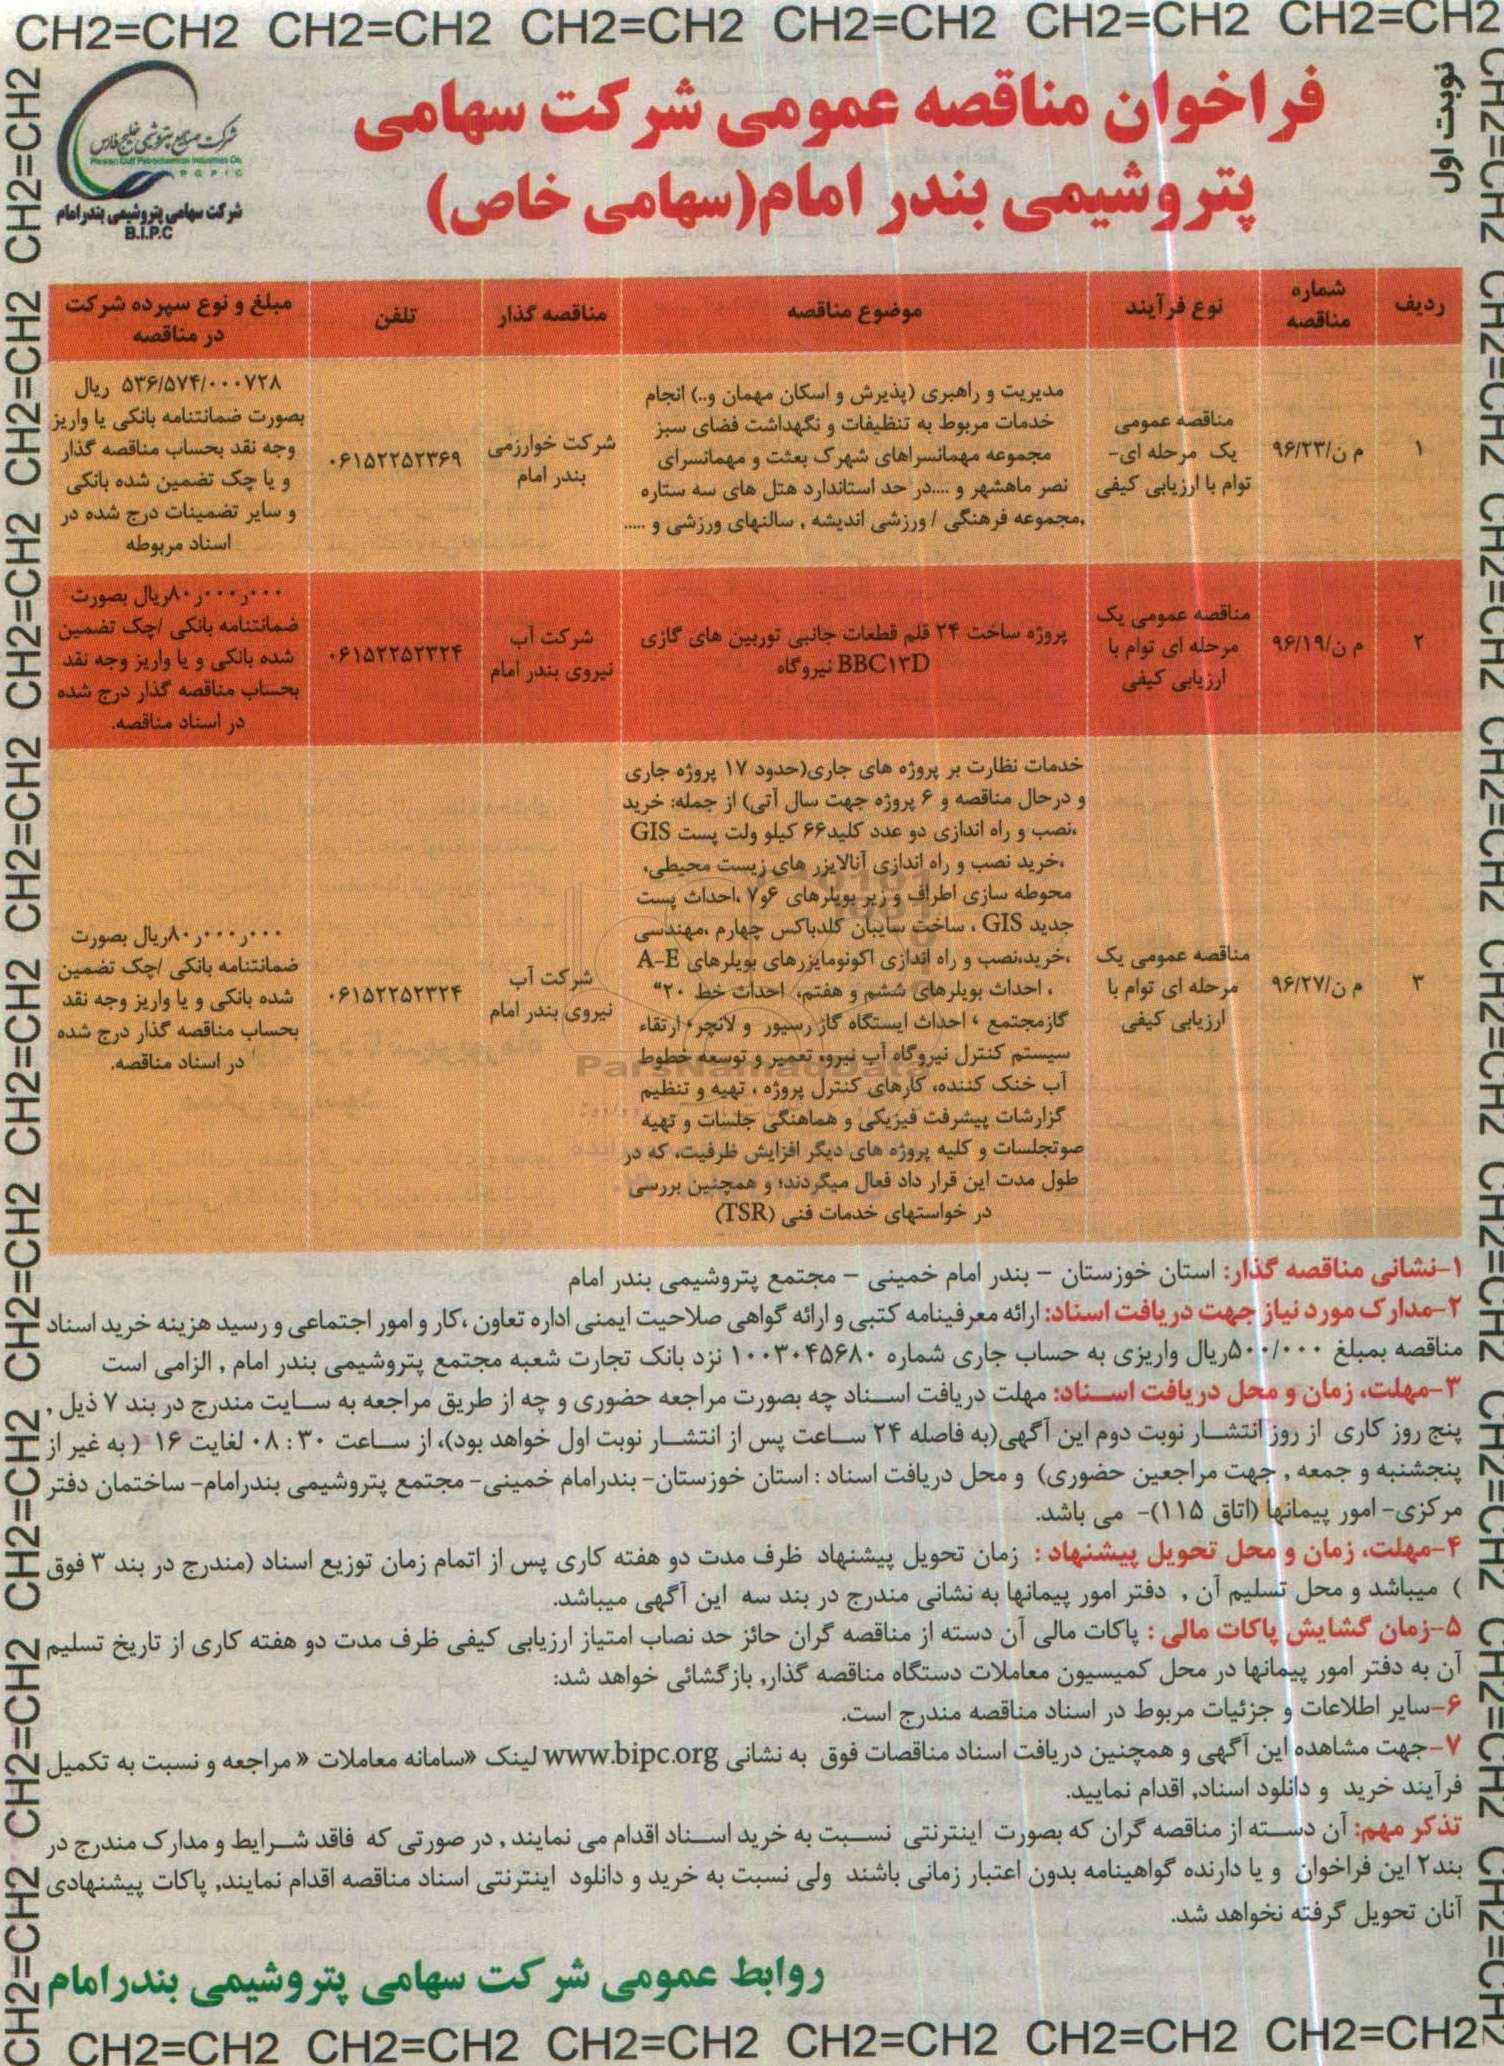 CH2=CH2 CH2=CH2 CH2=CH2 CH2=CH2 CH2=CH2 CH2=CH2
نوبت اول
فراخوان مناقصه عمومی شرکت سهامی
پتروشیمی بندر امام(سهامی خاص)
شرکت صنایع پتروشیمی خلیج فارس
Persian Gulf Petrochemical Industries Co.
P G P I C
شرکت سهامی پتروشیمی بندرامام
B.I.P.C
ردیف
شماره
مناقصه
نوع فرآیند
موضوع مناقصه
مناقصه گذار
تلفن
مبلغ و نوع سپرده شرکت
در مناقصه
۱
م ن/۹۶/۲۳
مناقصه عمومی
یک مرحله ای-
توام با ارزیابی کیفی
مدیریت و راهبری (پذیرش و اسکان مهمان و..) انجام
خدمات مربوط به تنظیفات و نگهداشت فضای سبز
مجموعه مهمانسراهای شهرک بعثت و مهمانسرای
نصر ماهشهر و ....در حد استاندارد هتل های سه ستاره
,مجموعه فرهنگی / ورزشی اندیشه , سالنهای ورزشی و .....
شرکت خوارزمی
بندر امام
۰۶۱۵۲۲۵۲۳۶۹
۵۳۶/۵۷۴/۰۰۰۷۲۸ ریال
بصورت ضمانتنامه بانکی یا واریز
وجه نقد بحساب مناقصه گذار
و یا چک تضمین شده بانکی
و سایر تضمینات درج شده در
اسناد مربوطه
۲
م ن/۹۶/۱۹
مناقصه عمومی یک
مرحله ای توام با
ارزیابی کیفی
پروژه ساخت ۲۴ قلم قطعات جانبی توربین های گازی
BBC۱۳D نیروگاه
شرکت آب
نیروی بندر امام
۰۶۱۵۲۲۵۲۳۲۴
۸۰ر۰۰۰ر۰۰۰ریال بصورت
ضمانتنامه بانکی /چک تضمین
شده بانکی و یا واریز وجه نقد
بحساب مناقصه گذار درج شده
در اسناد مناقصه.
۳
م ن/۹۶/۲۷
مناقصه عمومی یک
مرحله ای توام با
ارزیابی کیفی
خدمات نظارت بر پروژه های جاری(حدود ۱۷ پروژه جاری
و درحال مناقصه و ۶ پروژه جهت سال آتی) از جمله: خرید
،نصب و راه اندازی دو عدد کلید۶۶ کیلو ولت پست GIS
،خرید نصب و راه اندازی آنالایزر های زیست محیطی،
محوطه سازی اطراف و زیر بویلرهای ۶و۷ ،احداث پست
جدید GIS ، ساخت سایبان کلدباکس چهارم ،مهندسی
،خرید،نصب و راه اندازی اکونومایزرهای بویلرهای A-E
، احداث بویلرهای ششم و هفتم، احداث خط ۲۰"
گازمجتمع ، احداث ایستگاه گاز رسیور و لانچر، ارتقاء
سیستم کنترل نیروگاه آب نیرو، تعمیر و توسعه خطوط
آب خنک کننده، کارهای کنترل پروژه ، تهیه و تنظیم
گزارشات پیشرفت فیزیکی و هماهنگی جلسات و تهیه
صوتجلسات و کلیه پروژه های دیگر افزایش ظرفیت، که در
طول مدت این قرار داد فعال میگردند؛ و همچنین بررسی
در خواستهای خدمات فنی (TSR)
شرکت آب
نیروی بندر امام
۰۶۱۵۲۲۵۲۳۲۴
۸۰ر۰۰۰ر۰۰۰ریال بصورت
ضمانتنامه بانکی /چک تضمین
شده بانکی و یا واریز وجه نقد
بحساب مناقصه گذار درج شده
در اسناد مناقصه.
ParsNamadData
۱-نشانی مناقصه گذار: استان خوزستان – بندر امام خمینی – مجتمع پتروشیمی بندر امام
۲-مدارک مورد نیاز جهت دریافت اسناد: ارائه معرفینامه کتبی و ارائه گواهی صلاحیت ایمنی اداره تعاون ،کار و امور اجتماعی و رسید هزینه خرید اسناد
مناقصه بمبلغ ۵۰۰/۰۰۰ریال واریزی به حساب جاری شماره ۱۰۰۳۰۴۵۶۸۰ نزد بانک تجارت شعبه مجتمع پتروشیمی بندر امام , الزامی است
۳-مهلت، زمان و محل دریافت اسناد: مهلت دریافت اسناد چه بصورت مراجعه حضوری و چه از طریق مراجعه به سایت مندرج در بند ۷ ذیل ,
پنج روز کاری از روز انتشار نوبت دوم این آگهی(به فاصله ۲۴ ساعت پس از انتشار نوبت اول خواهد بود)، از ساعت ۳۰ : ۰۸ لغایت ۱۶ ( به غیر از
پنجشنبه و جمعه , جهت مراجعین حضوری) و محل دریافت اسناد : استان خوزستان- بندرامام خمینی- مجتمع پتروشیمی بندرامام- ساختمان دفتر
مرکزی- امور پیمانها (اتاق ۱۱۵)- می باشد.
۴-مهلت، زمان و محل تحویل پیشنهاد : زمان تحویل پیشنهاد ظرف مدت دو هفته کاری پس از اتمام زمان توزیع اسناد (مندرج در بند ۳ فوق
) میباشد و محل تسلیم آن , دفتر امور پیمانها به نشانی مندرج در بند سه این آگهی میباشد.
۵-زمان گشایش پاکات مالی : پاکات مالی آن دسته از مناقصه گران حائز حد نصاب امتیاز ارزیابی کیفی ظرف مدت دو هفته کاری از تاریخ تسلیم
آن به دفتر امور پیمانها در محل کمیسیون معاملات دستگاه مناقصه گذار, بازگشائی خواهد شد:
۶-سایر اطلاعات و جزئیات مربوط در اسناد مناقصه مندرج است.
۷-جهت مشاهده این آگهی و همچنین دریافت اسناد مناقصات فوق به نشانی www.bipc.org لینک «سامانه معاملات « مراجعه و نسبت به تکمیل
فرآیند خرید و دانلود اسناد, اقدام نمایید.
تذکر مهم: آن دسته از مناقصه گران که بصورت اینترنتی نسبت به خرید اسناد اقدام می نمایند , در صورتی که فاقد شرایط و مدارک مندرج در
بند۲ این فراخوان و یا دارنده گواهینامه بدون اعتبار زمانی باشند ولی نسبت به خرید و دانلود اینترنتی اسناد مناقصه اقدام نمایند, پاکات پیشنهادی
آنان تحویل گرفته نخواهد شد.
روابط عمومی شرکت سهامی پتروشیمی بندرامام
CH2=CH2 CH2=CH2 CH2=CH2 CH2=CH2 CH2=CH2 CH2=CH2